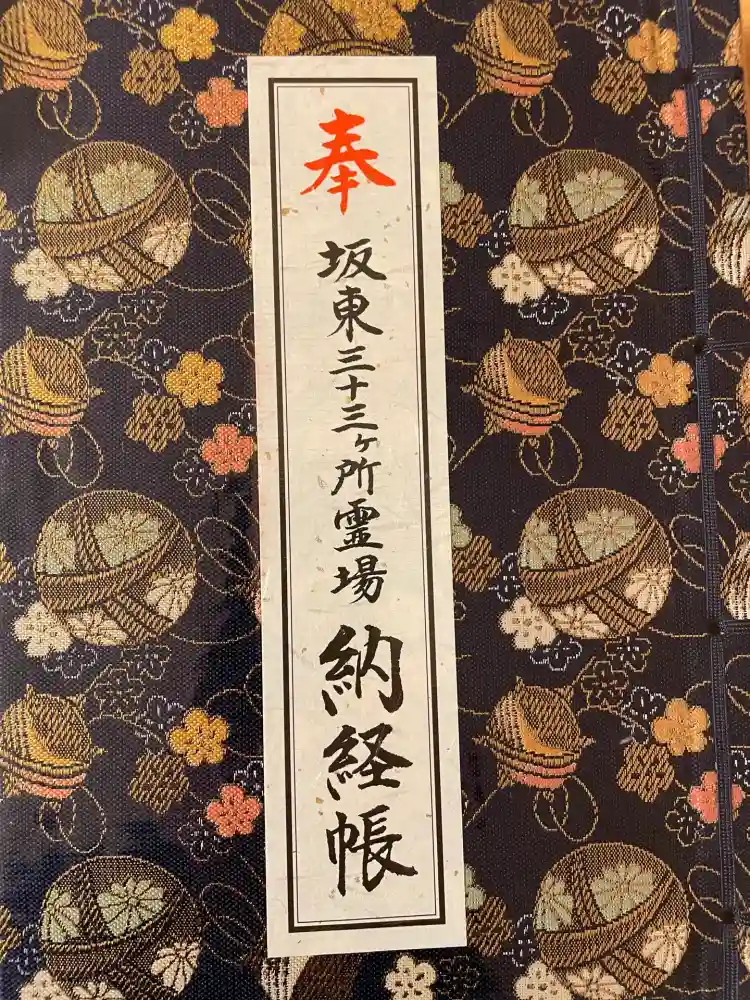 奉
坂東三十三ヶ所霊場
納経帳